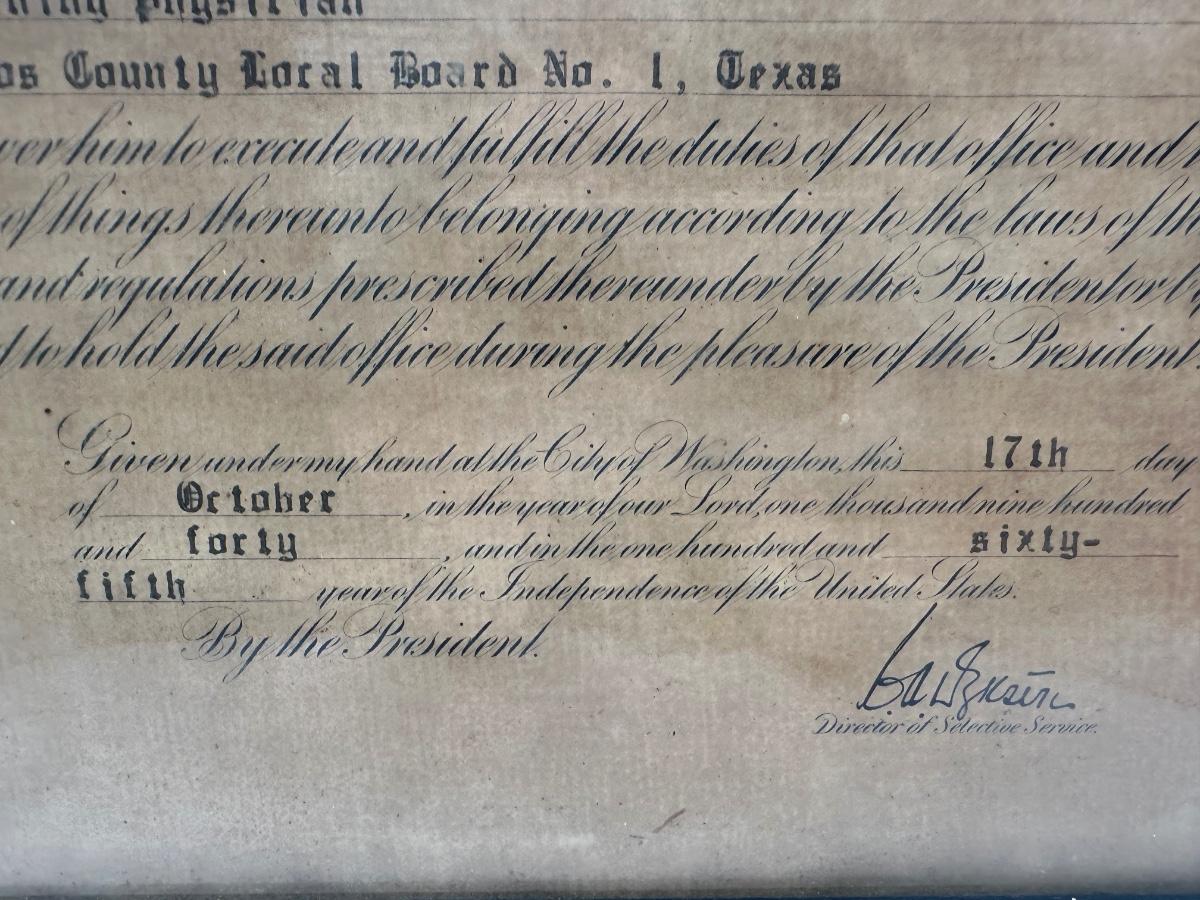 Physician
os County Local Board No. 1, Texas
ver him to execute and fulfill the duties of that office and
of things thereunto belonging according to the laws of th
and regulations prescribed thereunder by the President or b
to hold the said office during the pleasure of the President.
Given under my hand at the City of Washington, this 17th day
of October, in the year of our Lord, one thousand nine hundred
and forty, and in the one hundred and sixty-
fifth year of the Independence of the United States.
By the President.
Director of Selective Service.